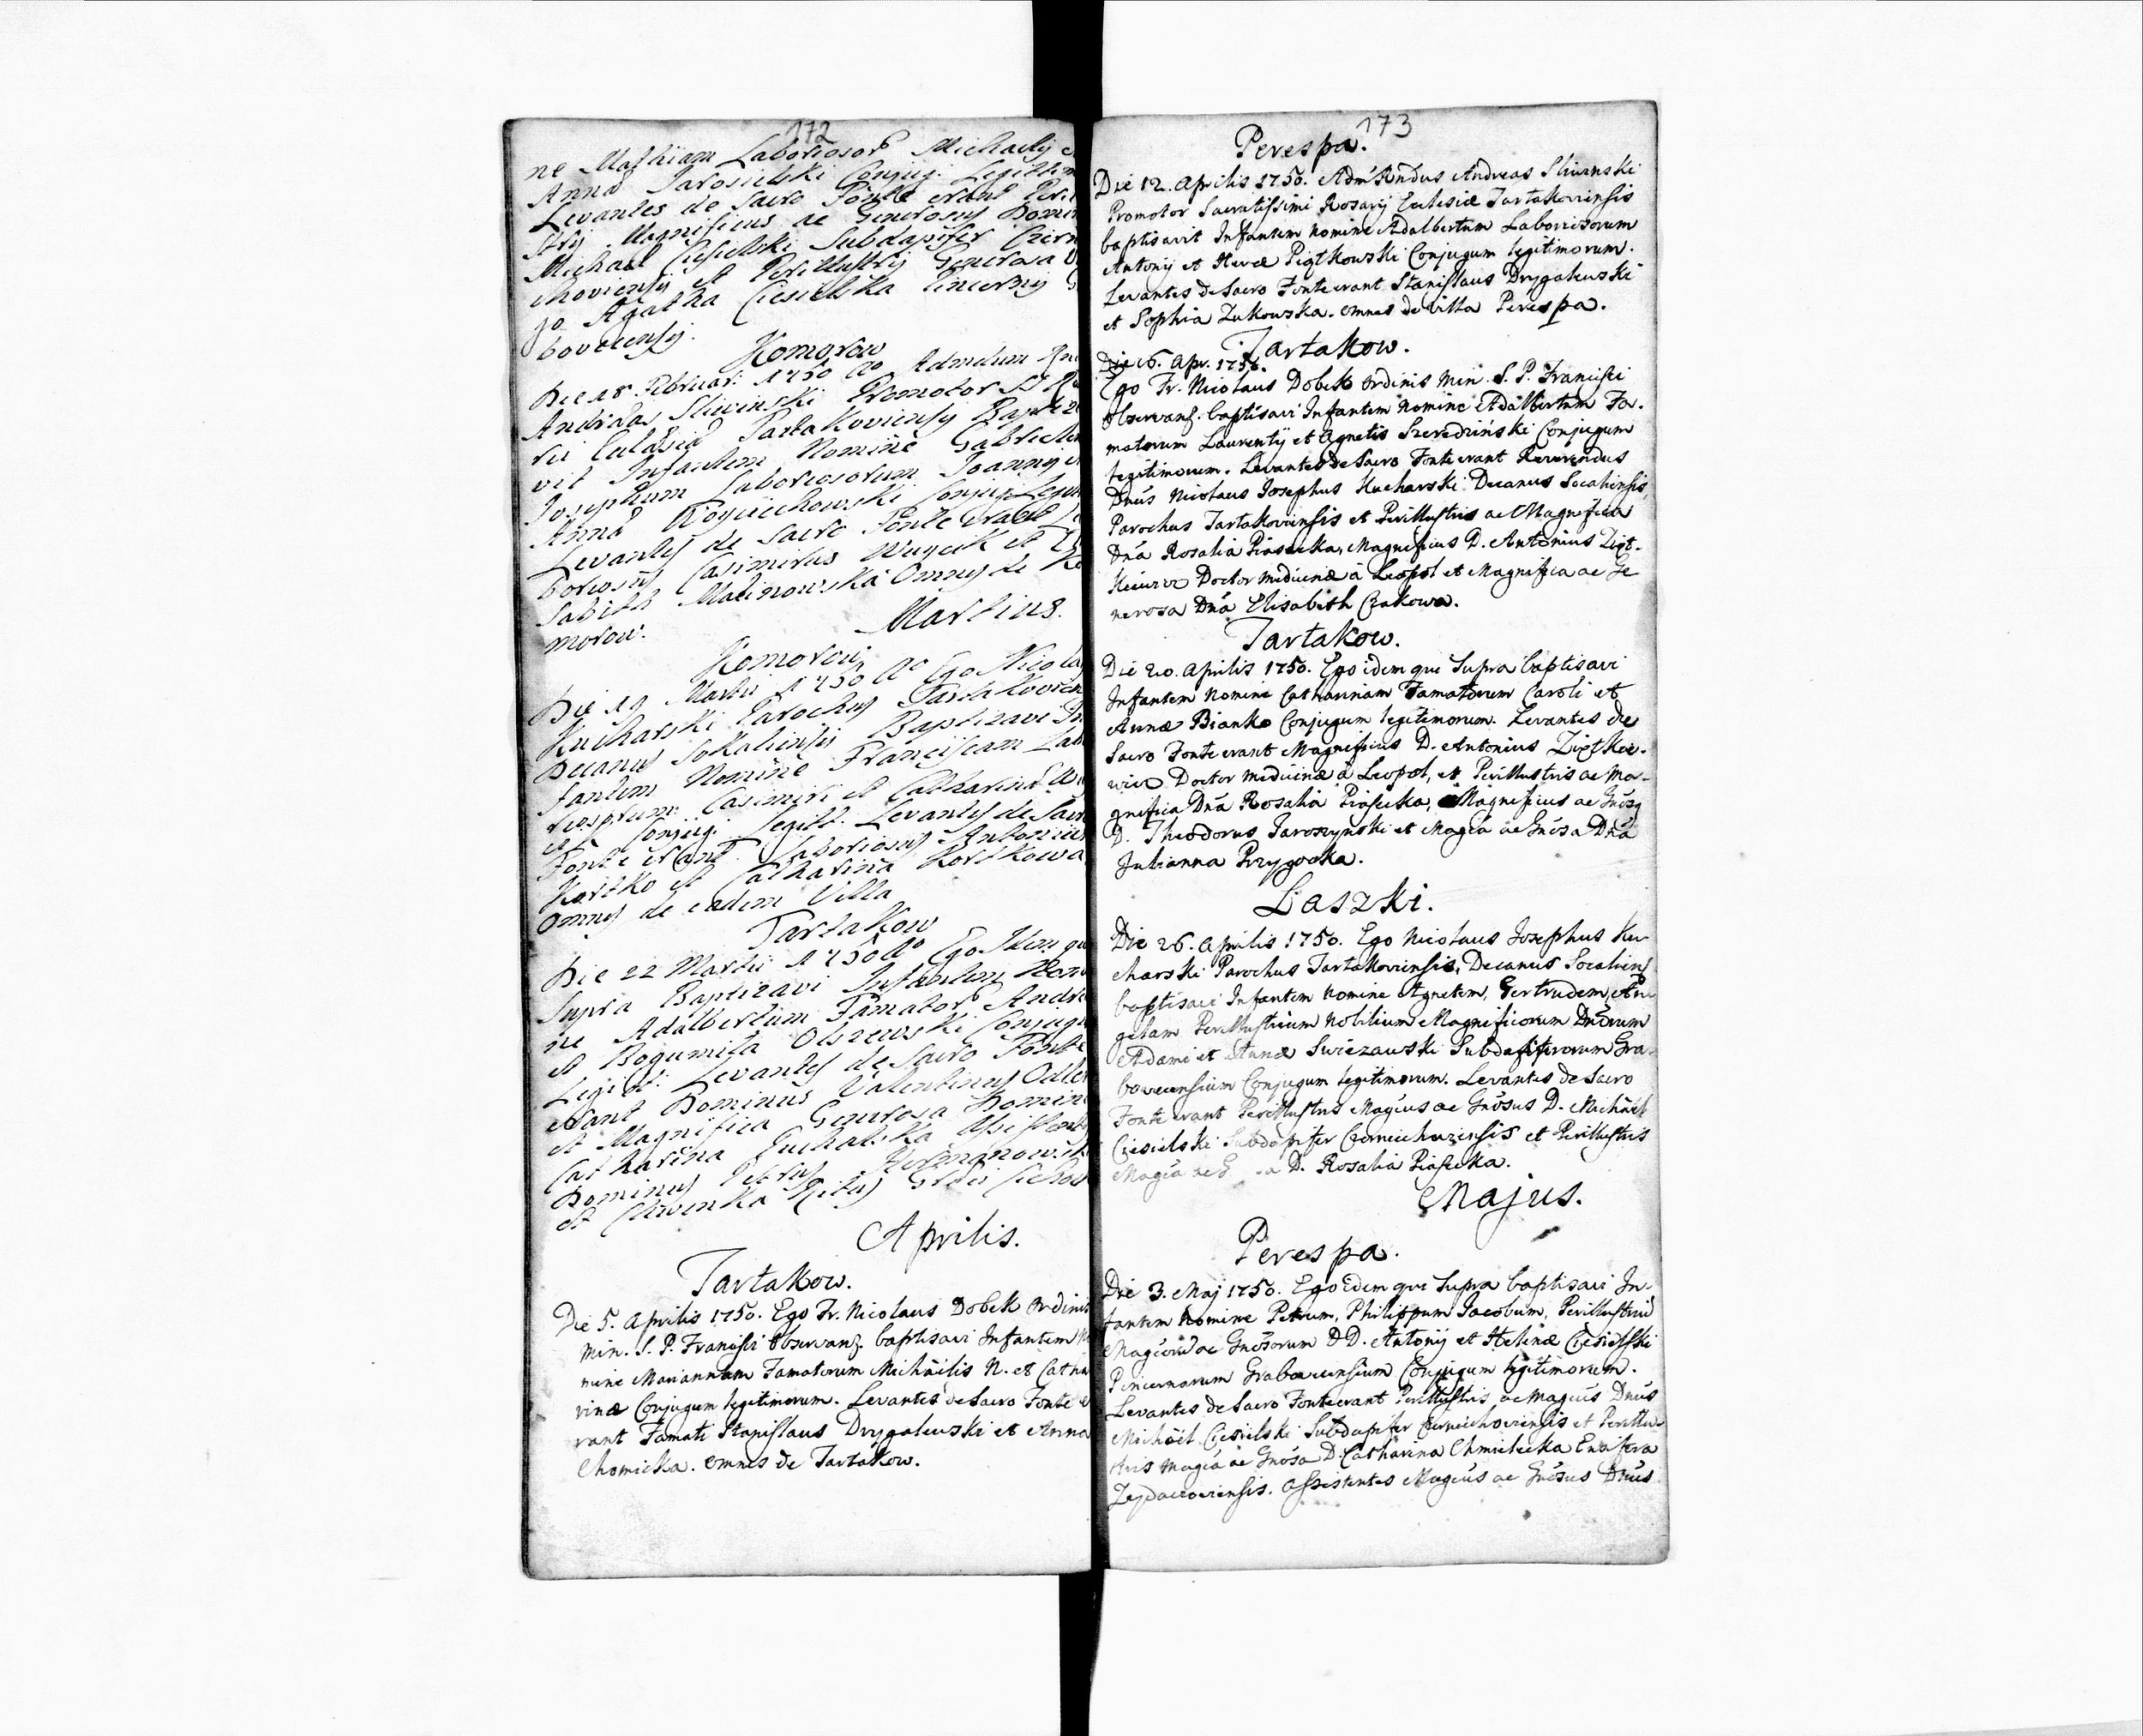 172
ne Mathiam Laborioso͞r Michaelij
Anna Jarosielski Conjug. Legittim
Levantes de Sacro Fonte erant Per
strij Magnificus ac Generosus Domi
Michael Ciesielski Subdapifer Czern
choviensij et Perillustrij Generosa
Agatha Ciesielska Pincernij
bovecensij.
Komorow
Die 18 Februar: 1750 Ao Admdum
Andreas Sliwinski Promotor St
rii Eclesia Tartakoviensij Baptiza
vit Infantem Nomine Gabriele
Josephum Laboriosorum Joannij
Anna Woyciechowski Conjug Legit
Levantes de Sacro Fonte erant La
boriosus Casimirus Wuycik et
Sabith Malinowska Omnes de Ko
morow.
Martius.
Komorow
Die 19 Martii 1750 Ao Ego Nicola
Kucharski Parochus Tartakovien
Decanus Sokaliensis Baptizavi In
fantem Nomine Franciscam Lab
riosorum Casimiri et Catharina
Conjug. Legitt. Levantes de Sacro
Fonte erant Laboriosus Antonius
Kostko et Catharina Kostkowa
Omnes de eadem Villa
Tartakow
Die 22 Martii 1750 Ao Ego Idem qui
Supra Baptizavi Infantem Nomi
ne Adalbertum Famator͞ Andre
et Bogumila Olszewski Conjug
Legitt. Levantes de Sacro Fonte
erant Dominus Valentinus
et Magnifica Generosa Domin
Catharina Assistent
Dominus Petrus Hermanowsk
et
Aprilis.
Tartakow.
Die 5. Aprilis 1750. Ego Fr. Nicolaus Dobek Ordinis
Min. S. P. Francisci Observanz. baptisavi Infantem
mine Mariannam Famatorum Michäelis N. et Catha
rinæ Conjugum legitimorum. Levantes de Sacro Fonte e
rant Famati Stanislaus Drygaleuski et Anna
Chomicka. Omnes de Tartakow.
173
Perespa.
Die 12. Aprilis 1750. Adm͞ R͞ndus Andreas Sliwinski
Promotor Sacratissimi Rosarij Ecclesiæ Tartakoviensis
baptisavit Infantem nomine Adalbertum Laboriosorum
Antonij et Hevæ Piątkowski Conjugum legitimorum.
Levantes de Sacro Fonte erant Stanislaus Drygaleuski
et Sophia Zukowska. omnes de Villa Perespa.
Tartakow.
Die 16. Apr. 1750.
Ego Fr. Nicolaus Dobek Ordinis Min. S. P. Francisci
Observanz. baptisavi Infantem nomine Adalbertum Fa-
matorum Laurentij et Agnetis Szeredziński Conjugum
legitimorum. Levantes de Sacro Fonte erant Reverendus
Dn͞us Nicolaus Josephus Kucharski Decanus Socaliensis,
Parochus Tartakoviensis et Perillustris ac Magnifica
Dn͞a Rosalia Piasecka, Magnificus D. Antonius Zięt-
kiewicz Doctor Medicinæ à Leopol et Magnifica ac Ge
nerosa Dn͞a Elisabeth Czakowa.
Tartakow.
Die 20. Aprilis 1750. Ego idem qui Supra baptisavi
Infantem nomine Catharinam Famatorum Caroli et
Annæ Bianko Conjugum legitimorum. Levantes de
Sacro Fonte erant Magnificus D. Antonius Ziętkie-
wicz Doctor Medicinæ à Leopol, et Perillustris ac Ma-
gnifica Dn͞a Rosalia Piasecka, Magnificus ac Gn͞osg
D. Theodorus Jaroszynski et Mag͞ca ac Gn͞osa Dn͞a
Julianna Przygocka.
Laszki.
Die 26. Aprilis 1750. Ego Nicolaus Josephus Ku-
charski Parochus Tartakoviensis, Decanus Socaliens
baptisavi Infantem nomine Agnetem, Gertrudem, An
gelam Perillustrium Nobilium Magnificorum Dn͞orum
Adami et Annæ Swiezawski Subdapiferorum Gra-
bovecensium Conjugum legitimorum. Levantes de Sacro
Fonte erant Perillustris Mag͞cus ac Gn͞osus D. Michäel
Ciesielski Subdapifer Czerniechoviensis et Perillustris
Mag͞ca ac D. Rosalia Piasecka.
Majus.
Perespa.
Die 3. Maj 1750. Ego idem qui Supra baptisavi In-
fantem nomine Petrum, Philippum Jacobum, Perillustriu͞
Mag͞coru͞ ac Gn͞osorum DD. Antonij et Helenæ Ciesielski
Pincernarum Grabovecensium Conjugum legitimorum.
Levantes de Sacro Fonte erant Perillustris ac Mag͞cus Dn͞us
Michäel Ciesielski Subdapifer Czerniechoviensis et Perillu-
stris Mag͞ca ac Gn͞osa D. Catharina Chmielecka Ensifera
Zydaczoviensis. Assistentes Mag͞cus ac Gn͞osus Dn͞us